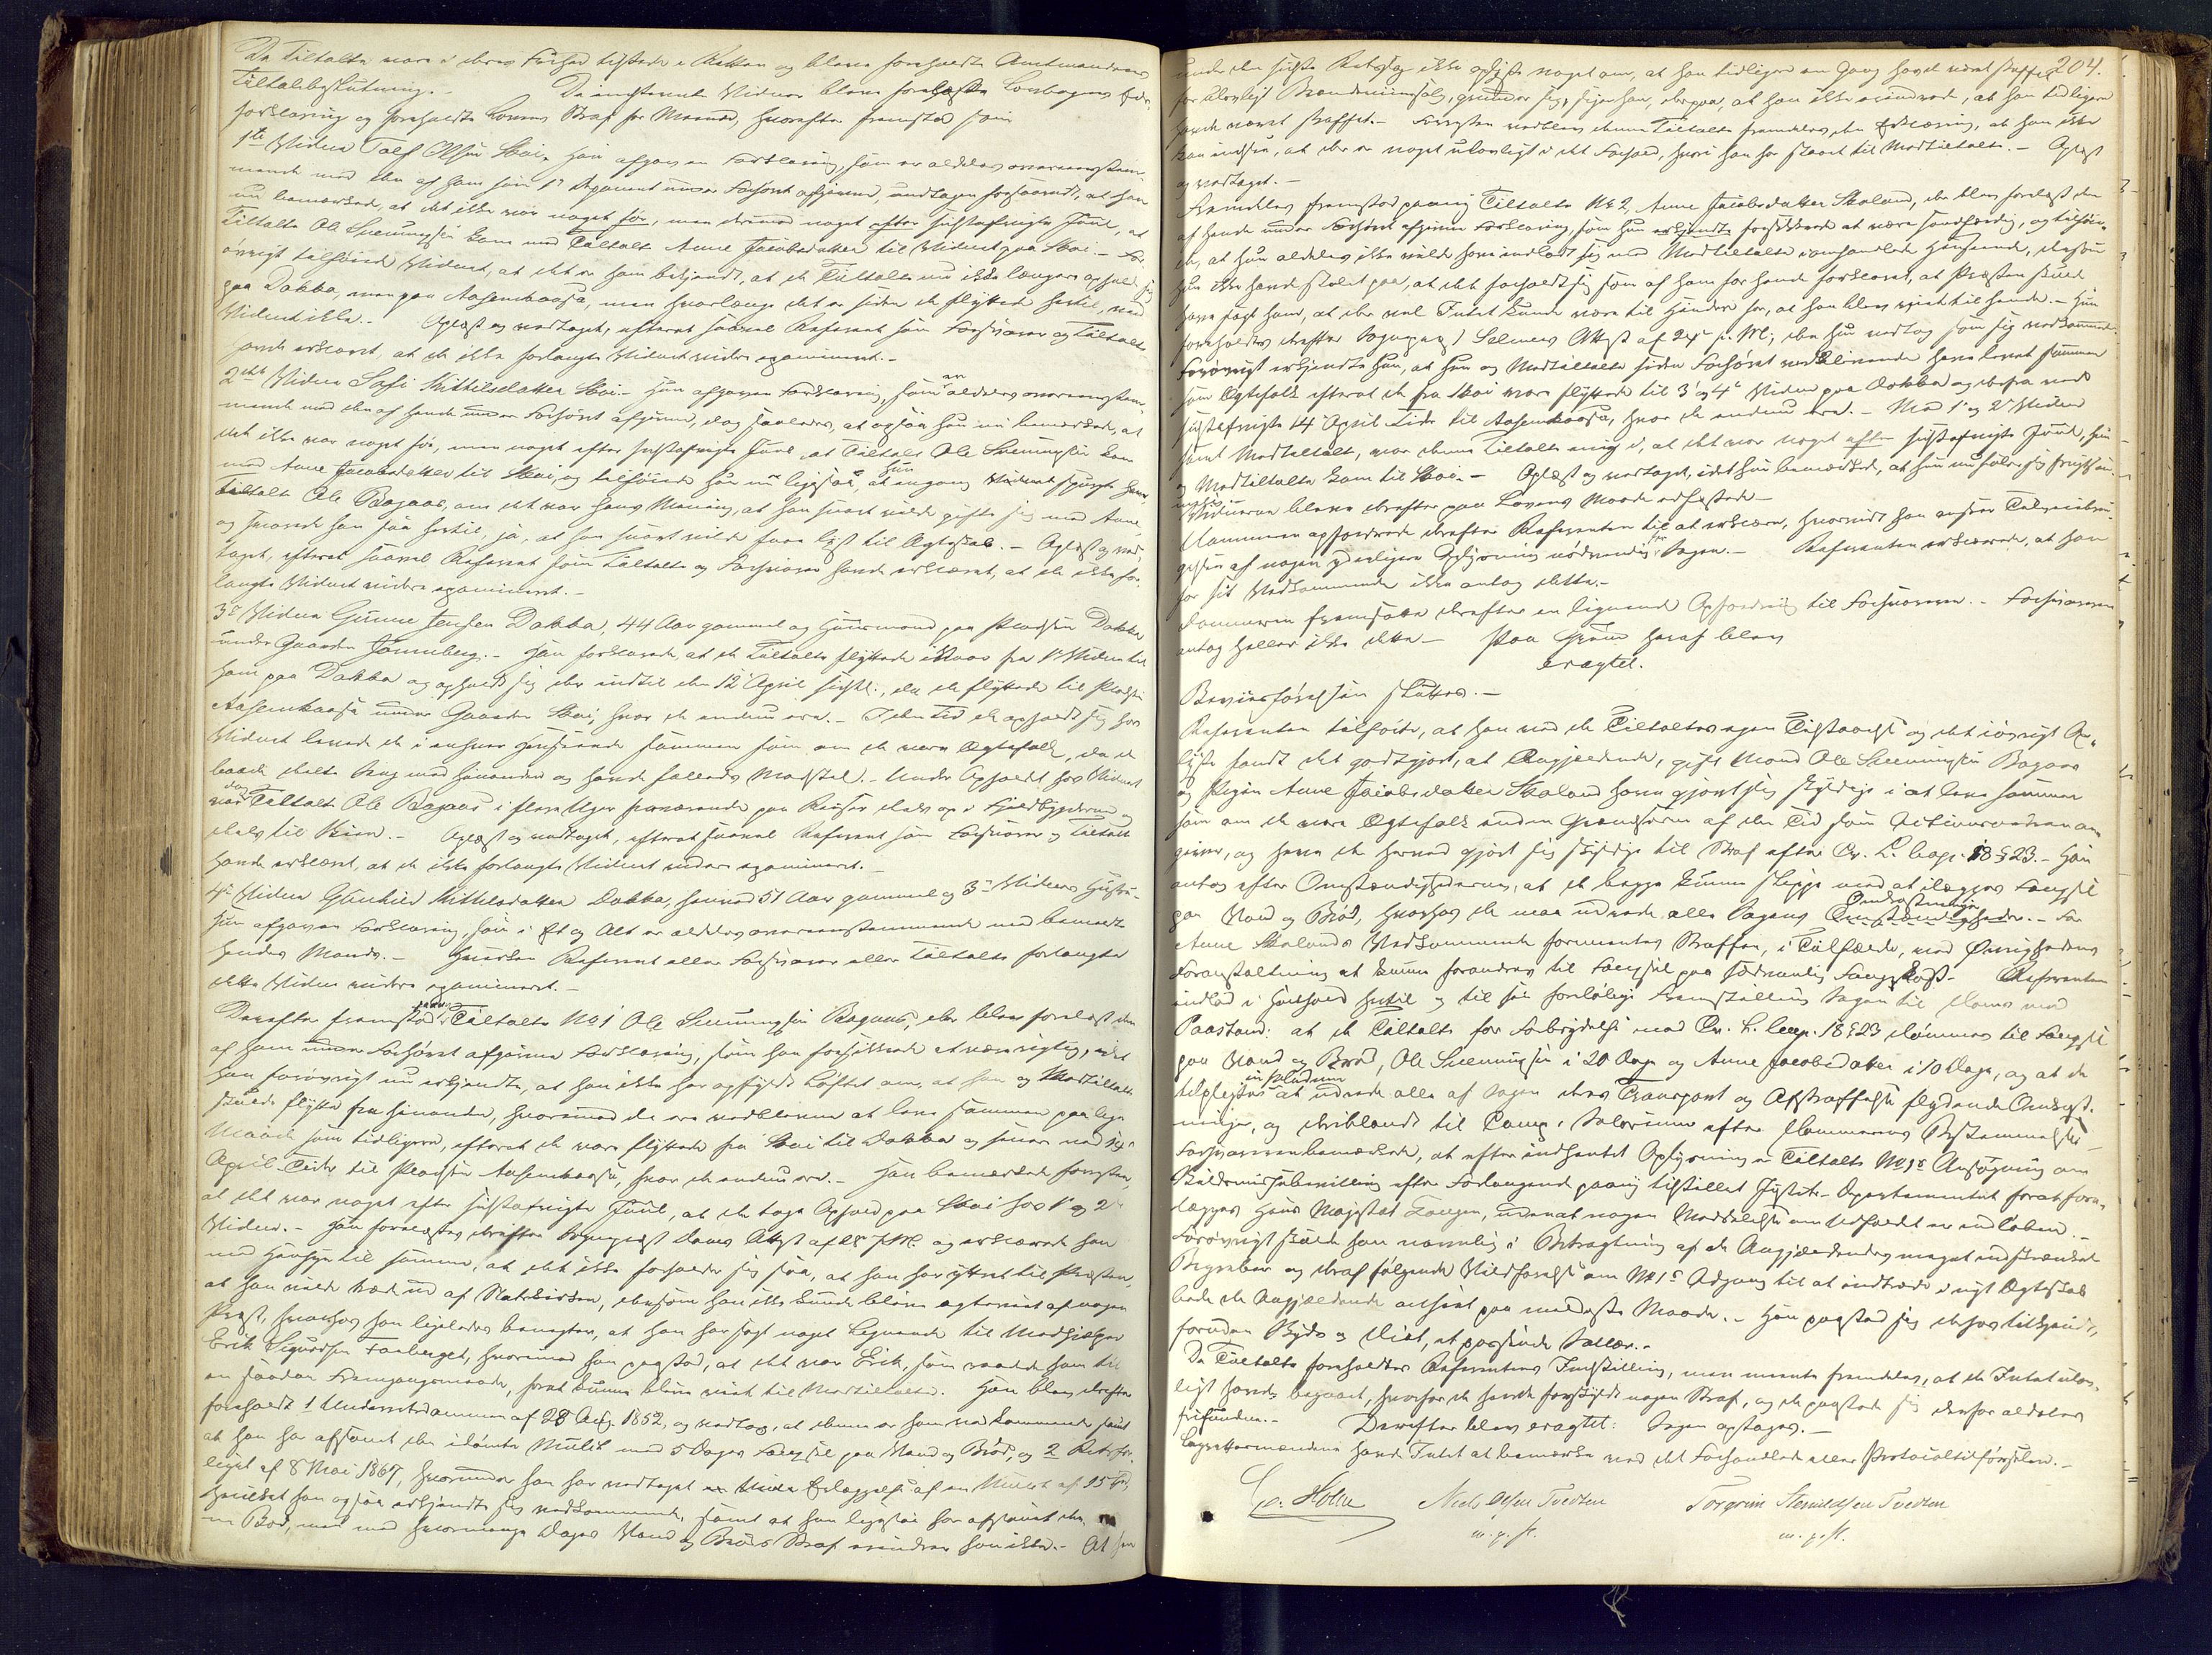 De Tiltalte vare i deres Frihed tilstede i Retten og bleve foreholdte Amtmandens
Tiltalebeslutning. - De indstevnte Vidner bleve forelæste Lovbogens Eds-
forklaring og foreholdte Lovens Straf for Meened, hvorefter fremstod som
1ste Vidne Tolf Olsen Skoi. Han afgav en Forklaring, som er aldeles overensstem-
mende med den af ham som 1ste Deponent under Forhøret afgivne, undtagen forsaavidt, at han
nu bemærkede, at det ikke var noget før, men derimod noget efter sidstafvigte Juul, at
Tiltalte Ole Svenningsen kom med Tiltalte Anne Jacobsdatter til Vidnet paa Skoi. - For-
øvrigt tilføiede Vidnet, at det er ham bekjendt, at de Tiltalte nu ikke længere opholde sig
paa Dokka, men paa Aasemkaasa, men hvorlænge det er siden de flyttede hertil, veed
Vidnet ikke. - Oplæst og vedtaget, efterat saavel Referent som Forsvarer og Tiltalte
havde erklæret, at de ikke forlangte Vidnet videre examineret. -
2det Vidne Sofi Kittilsdatter Skoi. - Hun afgav en Forklaring, som er aldeles overensstem-
mende med den af hende under Forhøret afgivne, dog saaledes, at ogsaa hun nu bemærkede, at
det ikke var noget før, men noget efter sidstafvigte Juul at Tiltalte Ole Svenningsen kom
med Anne Jacobsdatter til Skoi, og tilføiede hun nu ligesaa, at hun engang Vidnet spurgte ham,
Tiltalte Ole Bogaas, om det var hans Mening, at han snart vilde gifte sig med Anne,
og svarede han saa hertil, ja, at han snart vilde faae lyst til Ægteskab. - Oplæst og ved-
taget, efterat saavel Referent som Tiltalte og Forsvarer havde erklæret, at de ikke for-
langte Vidnet videre examineret. -
3die Vidne Gunne Jensen Dokka, 44 Aar gammel og Huusmand paa Pladsen Dokka
under Gaarden Jønneberg. - Han forklarede, at de Tiltalte flyttede ivaar fra 1ste Vidne til
ham paa Dokka og opholdt sig der indtil den 12 April sidstl., da de flyttede til Pladsen
Aasemkaasa under Gaarden Skoi, hvor de endnu ere. - I den Tid de opholdt sig hos
Vidnet levede de i enhver Henseende sammen som om de vare Ægtefolk, da de
baade delte Seng med hinanden og havde fælleds Madstel. - Under Opholdet hos Vidnet
var dog Tiltalte Ole Bogaas i flere Uger fraværende paa Reiser dels op i Fjeldbygderne og
dels til Skien. - Oplæst og vedtaget, efterat saavel Referent som Forsvarer og Tiltalte
havde erklæret, at de ikke forlangte Vidnet videre examineret. -
4de Vidne Gunhild Kittilsdatter Dokka, henved 51 Aar gammel og 3die Vidnes Hustru.
Hun afgav en Forklaring, som i Et og Alt er aldeles overensstemmende med bemeldte
hendes Mands. - Hverken Referent eller Forsvarer eller Tiltalte forlangte
dette Vidne videre examineret. -
Derefter fremstod paany Tiltalte No 1 Ole Svenningsen Bogaas, der blev forelæst den
af ham under Forhøret afgivne Forklaring, som han forsikkrede at være rigtig, idet
han forøvrigt nu erkjendte, at han ikke har opfyldt Løftet om, at han og Medtiltalte
skulde flytte fra hinanden, hvorimod de ere vedblevne at leve sammen paa lige
Maade som tidligere, efterat de vare flyttede fra Skoi til Dokka og senere ved sidste
April-Tider til Pladsen Aasemkaasa, hvor de endnu ere. - Han bemærkede forresten,
at det var noget efter sidstafvigte Juul, at de toge Ophold paa Skoi hos 1ste og 2det
Vidne. - Han forelæstes derefter Sogneprest Attest af 28 f. M. og erklærede han
med Hensyn til samme, at det ikke forholder sig saa, at han har yttret til Presten,
at han vilde træde ud af Statskirken, dersom han ikke kunde blive ægteviet af nogen
Prest, hvorhos han ligeledes benegter, at han har sagt noget Lignende til Medhjælper
Erik Sigurdsen Fanberget, hvorimod han paastod, at det var Erik, som raadede ham til
en saadan Fremgangsmaade, forat kunne blive viet til Medtiltalte. Han blev derefter
foreholdt 1 Underretsdommen af 28 Aug. 1852, og vedtog, at denne er ham vedkommende samt
at han har afsonet den idømte Mulkt med 5 Dages Fængsel paa Vand og Brød, og 2 Retsfor-
liget af 8 Mai 1867, hvorunder han har vedtaget Erlæggelse af en Mulkt af 25 Spd,
hvilket han ogsaa erkjendte sig vedkommende, samt at han ligesaa har afsonet den-
ne Bod, med med hvormange Dages Vand og Brøds Straf erindrer han ikke. - At han
204.
under den sidste Retssag ikke oplyste noget om, at han tidligere en Gang havde været straffet
for ulovligt Brændeviinssalg, grunder sig, siger han, derpaa, at han ikke erindrede, at han tidligere
havde været straffet. - Forresten vedblev denne Tiltalte fremdeles den Erklæring, at han ikke
kan indsee, at der er noget ulovligt i det Forhold, hvori han har staaet til Medtiltalte. - Oplæst
og vedtaget. -
Fremdeles fremstod paany Tiltalte No 2, Anne Jacobsdatter Skoland, der blev forelæst den
af hende under Forhøret afgivne Forklaring, som hun forsikkrede at være sandfærdig, og tilføie-
de, at hun aldeles ikke vilde have indladt sig med Medtiltalte i omhandlede Henseende, dersom
hun ikke havde stolet paa, at det forholdt sig som af ham for hende forklaret, at Presten skulde
have sagt ham, at der vel Intet kunde være til Hinder for, at han blev viet til hende. - Hun
foreholdtes derefter Sogneprest Selmers Attest af 24de s. M., der hun vedtog som sig vedkommende.
Forøvrigt erkjendte hun, at hun og Medtiltalte siden Forhøret vedblivende have levet sammen
som Ægtefolk efterat de fra Skoi vare flyttede til 3die og 4de Vidne paa Dokka og derfra ved
sidstafvigte 14de April Tider til Aasemkaasa, hvor de endnu ere. - Med 1ste og 2det Vidne
samt Medtiltalte, var denne Tiltalte enig i, at det var noget efter sidstafvigte Juul, hun
og Medtiltalte kom til Skoi. - Oplæst og vedtaget, idet hun bemærkede, at hun nu føler sig frugtsom-
melig.
Vidnerne bleve derefter paa Lovens Maade edfæstede -
Dommeren opfordrede derefter Referenten til at erklære, hvorvidt han ansaa Tilveiebrin-
gelsen af nogen yderligere Oplysning nødvendig for Sagen. - Referenten erklærede, at han
for sit Vedkommende ikke antog dette. -
Dommeren fremsatte derefter en lignende Opfordring til Forsvareren. - Forsvareren
antog heller ikke dette - Paa Grund heraf blev
eragtet.
Beviisførelsen sluttes. -
Referenten tilføiede, at han ved de Tiltaltes egen Tilstaaelse og det iøvrigt Op-
lyste fandt det godtgjort, at Angjældende, gift Mand Ole Svenningsen Bogaas
og Pigen Anne Jacobsdatter Skoland have gjort sig skyldige i at leve sammen
som om de vare Ægtefolk siden af den Tid som Actionsordren an-
giver, og have de herved gjort sig skyldige til Straf efter Cr. L. Cap. 18 § 23. - Han
antog efter Omstændighederne, at de begge kunne slippe med at ilægges Fængsel
paa Vand og Brød, hvorhos de maa udrede alle Sagens Omkostninger. - For
Anne Skolands Vedkommende formentes Straffen, i Tilfælde, ved Øvrighedens
Foranstaltning at kunne forandres til Fængsel paa sædvanlig Fangekost. - Referenten
indlod i Henhold hertil og til sin foreløbige Fremstilling Sagen til Doms med
Paastand: at de Tiltalte for Forbrydelse mod Cr. L. Cap. 18 § 23 dømmes til Fængsel
paa Vand og Brød, Ole Svenningsen i 20 Dage og Anne Jacobsdatter i 10 Dage, og at de
tilpligtes in solidum at udrede alle af Sagen deres Transport og Afstraffelse flydende Omkost-
ninger, og deriblandt til Comp. Salarium efter Dommerens Bestemmelse. -
Forsvareren bemærkede, at efter indhentet Oplysning er Tiltalte No 1s Ansøgning om
Skilsmissebevilling efter Forlangende paany tilstillet Justits-Departementet forat fore-
lægges Hans Majestæt Kongen, uden at nogen Meddelelse om Udfaldet er indløben. -
Forøvrigt skulde han navnlig i Betragtning af de Angjældendes meget indskrænkede
Begreber og deraf følgende Vildfarelse om No 1s Adgang til at indtræde i nyt Ægteskab
bede de Angjældende anseet paa mildeste Maade. - Han paastod sig derhos tilkjendt,
foruden Skyds og Diæt, et passende Salær. -
De Tiltalte foreholdtes Referentens Indstilling, men meente fremdeles, at de Intet ulov-
ligt havde begaaet, hvorfor de havde forskyldt nogen Straf, og de paastod sig derfor aldeles
frifundne. - Derefter blev eragtet: Sagen optages. -
Lagrettemændene havde Intet at bemærke ved det Forhandlede eller Protocoltilførselen. -
Holm Niels Olsen Tvedten Torgrim Stenuldsen Tvedten
m. p. P. m. p. P.